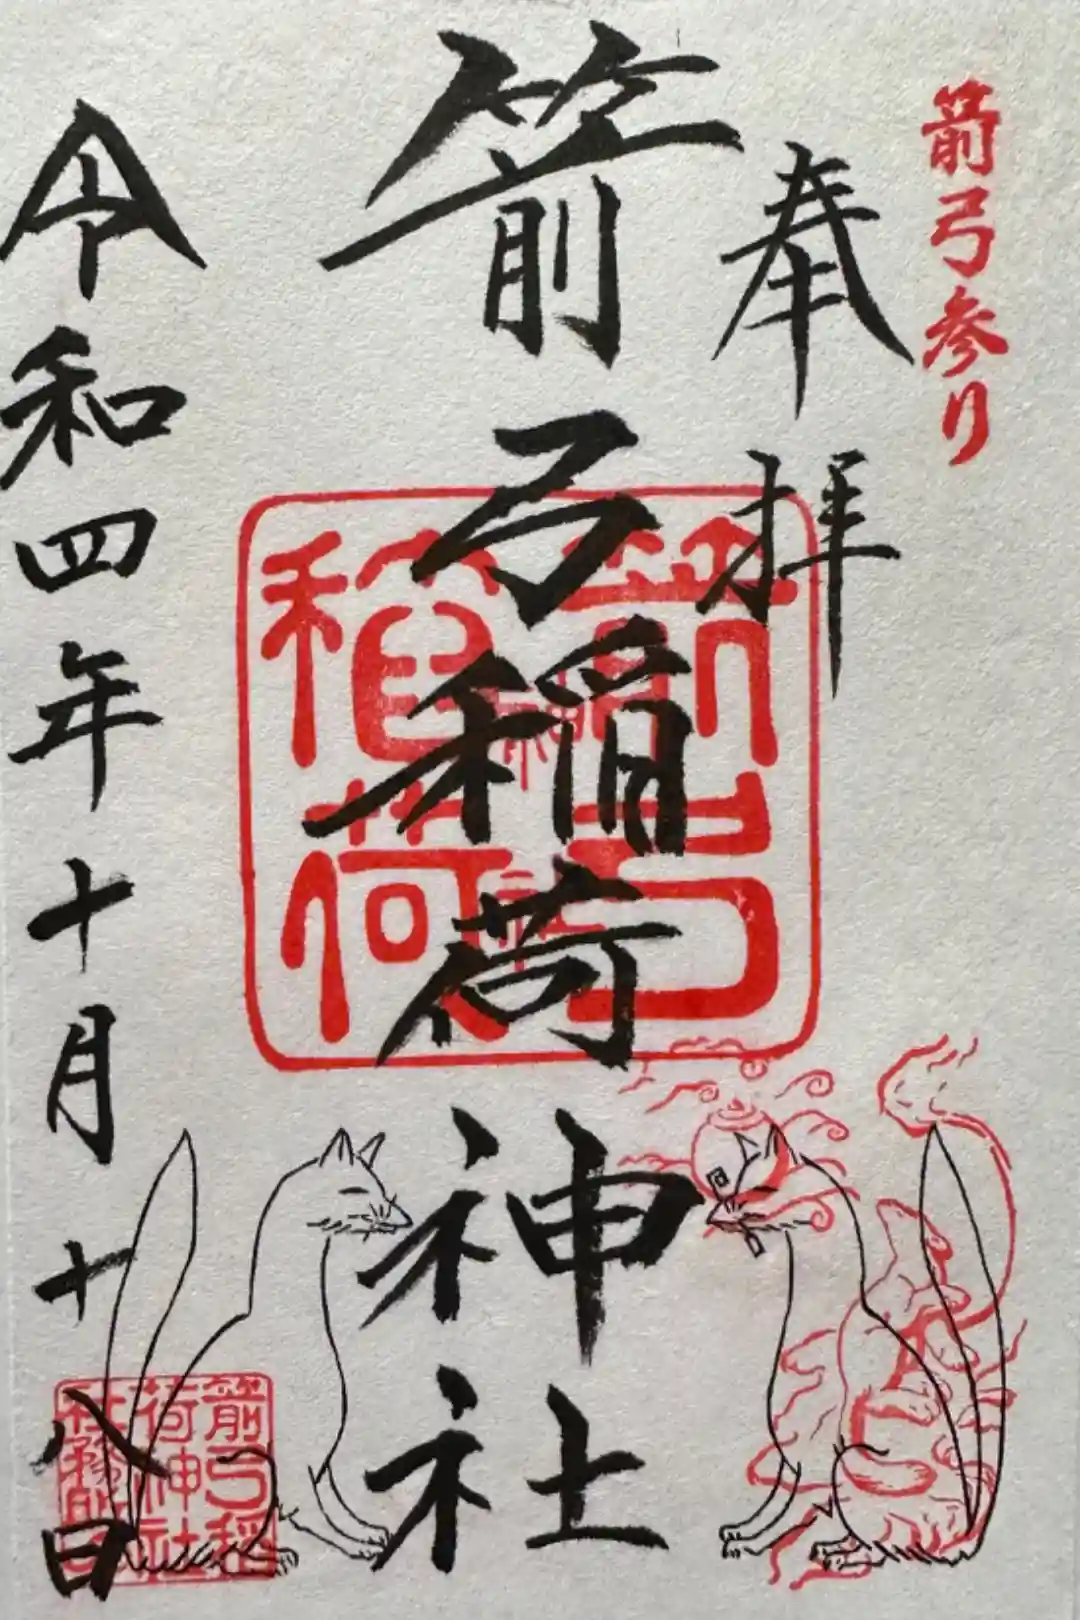 箭弓参り
奉拝
箭弓稲荷神社
箭弓稲荷
令和四年十月十八日
箭弓稲
荷神社
社務所